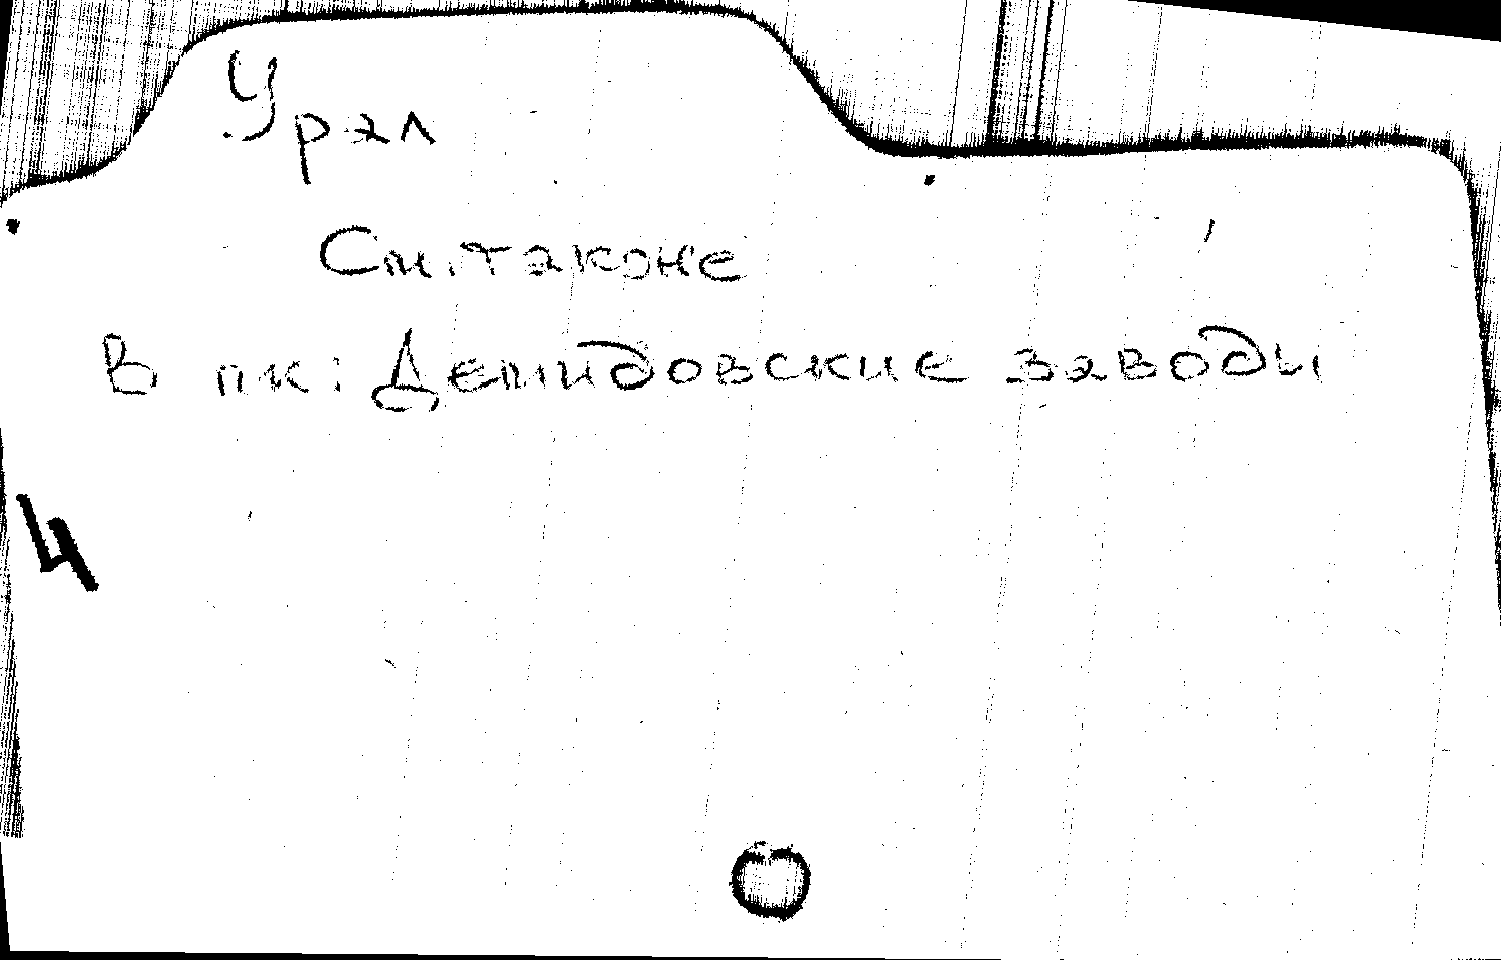 Урал
См. также
В пк: Демидовские заводы
4